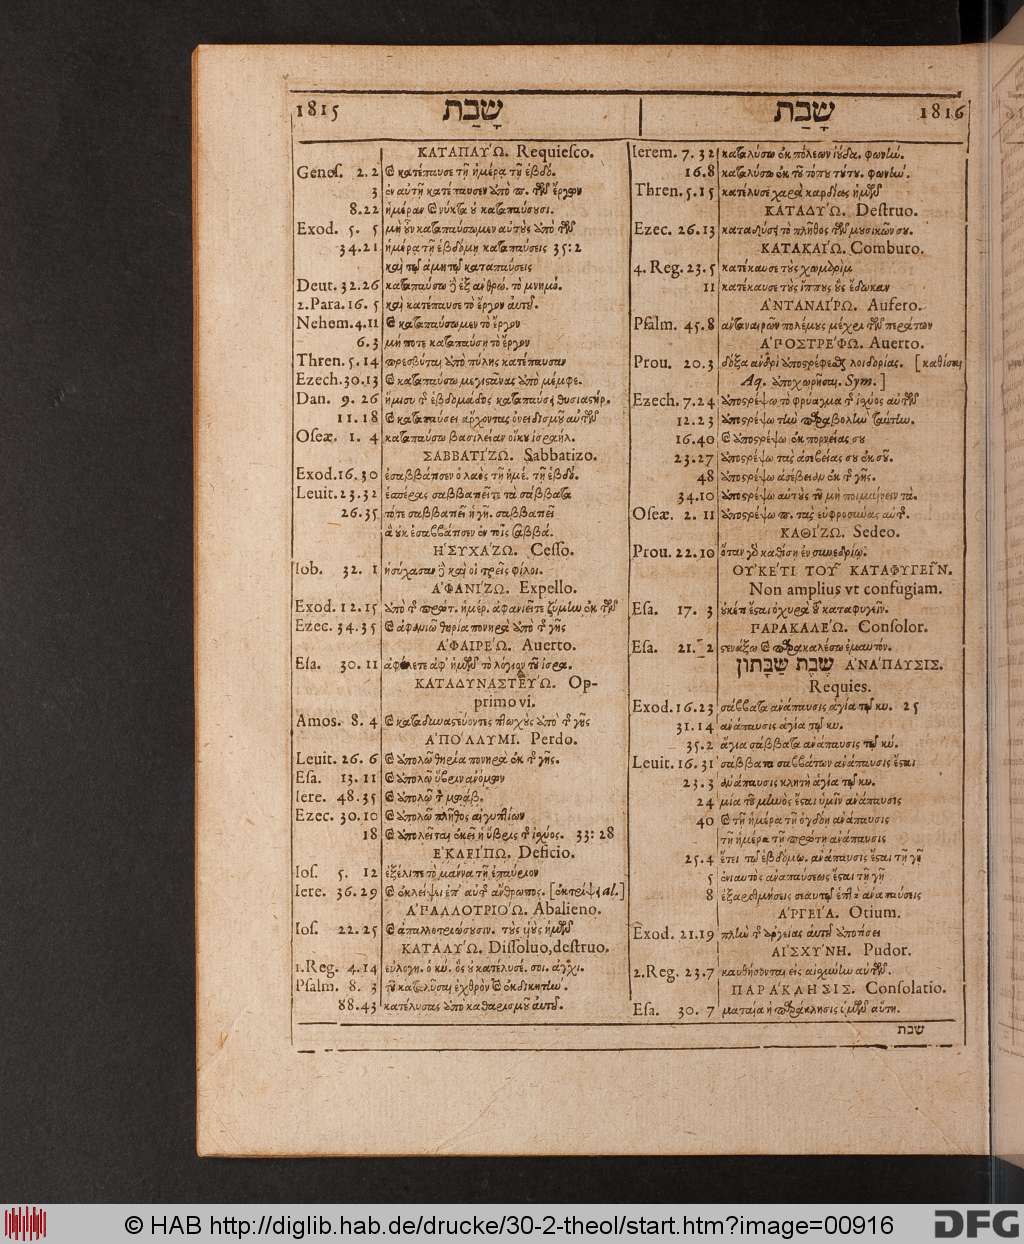 1815 שָׁבַת
ΚΑΤΑΠΑΥ΄Ω. Requiesco.
Genes. 2. 2 κατέπαυσε τῇ ἡμέρᾳ τῇ ἑβδό.
3 κατέπαυσεν ἔργων
8.22 ἡμέραν νύκτα οὐ καταπαύσουσι.
Exod. 5. 5 μὴ οὖν καταπαύσωμεν αὐτοὺς ἀπὸ τῶν
34.21 ἡμέρᾳ τῇ ἑβδόμῃ καταπαύσεις 35:2
καὶ τῷ ἀμητῷ καταπαύσεις
Deut. 32.26 καταπαύσω ἐξ ἀνθρώ. τὸ μνημό.
2.Para. 16. 5 καὶ κατέπαυσε τὸ ἔργον αὐτοῦ.
Nehem. 4.11 καταπαύσωμεν τὸ ἔργον
6.3 μή ποτε καταπαύσῃ τὸ ἔργον
Thren. 5.14 πρεσβύται ἀπὸ πύλης κατέπαυσαν
Ezech. 30.13 καταπαύσω μεγιστᾶνας ἀπὸ μέμφε.
Dan. 9. 26 ἥμισυ τῆς ἑβδομάδος καταπαύσει
11.18 καταπαύσει ἄρχοντας ὀνειδισμοῦ αὐτῶν
Oseæ. 1. 4 καταπαύσω βασιλείαν οἴκου ἰσραήλ.
ΣΑΒΒΑΤΙ΄ΖΩ. Sabbatizo.
Exod. 16. 30 ἐσαββάτισεν ὁ λαὸς τῇ ἡμέ. τῇ ἑβδό.
Leuit. 23.32 σαββατιεῖτε τὰ σάββατα
26.35 τότε σαββατιεῖ ἡ γῆ. σαββατιεῖ
ἃ οὐκ ἐσαββάτισεν ἐν τοῖς σαββά.
Η΄ΣΥΧΑ΄ΖΩ. Cesso.
Iob. 32. 1 ἡσύχασαν καὶ οἱ τρεῖς φίλοι.
Α΄ΦΑΝΙ΄ΖΩ. Expello.
Exod. 12.15 ἀπὸ τῆς πρώτ. ἡμέρ. ἀφανιεῖτε ζύμην ἐκ τῶν
Ezec. 34.25 ἀφανιῶ θηρία πονηρὰ ἀπὸ τῆς γῆς
Α΄ΦΑΙΡΕ΄Ω. Auerto.
Esa. 30. 11 ἀφέλετε ἀφ' ἡμῶν τὸ λόγιον τοῦ ἰσρα.
ΚΑΤΑΔΥΝΑΣΤΕΥ΄Ω. Op-
primo vi.
Amos. 8. 4 καταδυναστεύοντες πτωχοὺς ἀπὸ τῆς γῆς
Α΄ΠΟ΄ΛΛΥΜΙ. Perdo.
Leuit. 26. 6 ἀπολῶ θηρία πονηρὰ ἐκ τῆς γῆς.
Esa. 13. 11 ἀπολῶ ὕβριν ἀνόμων
Iere. 48.35 ἀπολῶ τὸν μωάβ.
Ezec. 30.10 ἀπολῶ πλῆθος αἰγυπτίων
18 ἀπολεῖται ἐκεῖ ἡ ὕβρις τῆς ἰσχύος. 33: 28
Ε΄ΚΛΕΙ΄ΠΩ. Deficio.
Ios. 5. 12 ἐξέλιπε τὸ μάννα τῇ ἐπαύριον
Iere. 36.29 ἐκλείψει ἐπ' αὐτῆς ἄνθρωπος. [ἐκτρίψει al.]
Α΄ΠΑΛΛΟΤΡΙΟ΄Ω. Abalieno.
Ios. 22.25 ἀπαλλοτριώσουσιν. τοὺς υἱοὺς ἡμῶν
ΚΑΤΑΛΥ΄Ω. Dissoluo, destruo.
1.Reg. 4.14 εὐλογη. ὁ κύ. ὃς οὐ κατέλυσέ. σοι. ἀγχι.
Psalm. 8. 3 τοῦ καταλῦσαι ἐχθρὸν ἐκδικητήν.
88.43 κατέλυσας ἀπὸ καθαρισμοῦ αὐτοῦ.
שָׁבַת 1816
Ierem. 7. 32 καταλύσω ἐκ πόλεων ἰούδα. φωνήν.
16.8 καταλύσω ἐκ τοῦ τόπου τούτου. φωνήν.
Thren. 5.15 κατέλυσε χαρὰ καρδίας ἡμῶν
ΚΑΤΑΔΥ΄Ω. Destruo.
Ezec. 26.13 καταδύσει τὸ πλῆθος τῶν μουσικῶν σου.
ΚΑΤΑΚΑΙ΄Ω. Comburo.
4. Reg. 23. 5 κατέκαυσε τοὺς χωμαρὶμ
11 κατέκαυσε τοὺς ἵππους οὓς ἔδωκαν
Α΄ΝΤΑΝΑΙ΄ΡΩ. Aufero.
Psalm. 45.8 ἀνταναιρῶν πολέμους μέχρι τῶν περάτων
Α΄ΠΟΣΤΡΕ΄ΦΩ. Auerto.
Prou. 20.3 δόξα ἀνδρὶ ἀποστρέφεσθαι λοιδορίας. [καθίσαι
Aq. ὑποχωρῆσαι. Sym.]
Ezech. 7.24 ἀποστρέψω τὸ φρύαγμα τῆς ἰσχύος αὐτῶν
12.23 ἀποστρέψω τὴν παραβολὴν ταύτην.
16.40 ἀποστρέψω ἐκ πορνείας σου
23.27 ἀποστρέψω τὰς ἀσεβείας σου ἐκ σοῦ.
48 ἀποστρέψω ἀσέβειαν ἐκ τῆς γῆς.
34.10 ἀποστρέψω αὐτοὺς τοῦ μὴ ποιμαίνειν τὰ.
Oseæ. 2. 11 ἀποστρέψω π. τὰς εὐφροσύνας αὐτῆς.
ΚΑΘΙ΄ΖΩ. Sedeo.
Prou. 22.10 ὅταν γὰρ καθίσῃ ἐν συνεδρίῳ.
ΟΥ΄ΚΕ΄ΤΙ ΤΟΥ͂ ΚΑΤΑΦΥΓΕΙ͂Ν.
Non amplius vt confugiam.
Esa. 17. 3 οὐκέτι ἔσται ὀχυρὰ τοῦ καταφυγεῖν.
ΠΑΡΑΚΑΛΕ΄Ω. Consolor.
Esa. 21. 2 στενάξω παρακαλέσω ἐμαυτόν.
שֶׁבֶת שַׁבָּתוֹן Α΄ΝΑ΄ΠΑΥΣΙΣ.
Requies.
Exod. 16.23 σάββατα ἀνάπαυσις ἁγία τῷ κυ. 25
31.14 ἀνάπαυσις ἁγία τῷ κυ.
35.2 ἅγια σάββατα ἀνάπαυσις τῷ κύ.
Leuit. 16.31 σάββατα σαββάτων ἀνάπαυσις ἔσται
23.3 ἀνάπαυσις κλητὴ ἁγία τῷ κυ.
24 μιᾷ τοῦ μηνὸς ἔσται ὑμῖν ἀνάπαυσις
40 τῇ ἡμέρᾳ τῇ ὀγδόῃ ἀνάπαυσις
τῇ ἡμέρᾳ τῇ πρώτῃ ἀνάπαυσις
25.4 ἔτει τῷ ἑβδόμῳ. ἀνάπαυσις ἔσται τῇ γῇ
5 ἐνιαυτὸς ἀναπαύσεως ἔσται τῇ γῇ
8 ἐξαριθμήσεις σεαυτῷ ἑπτὰ ἀναπαύσεις
Α΄ΡΓΕΙ΄Α. Otium.
Exod. 21.19 πλὴν τῆς ἀργείας αὐτοῦ ἀποτίσει
ΑΙ΄ΣΧΥ΄ΝΗ. Pudor.
2.Reg. 23.7 καυθήσονται εἰς αἰσχύνην αὐτῶν.
ΠΑΡΑ΄ΚΛΗΣΙΣ. Consolatio.
Esa. 30. 7 ματαία ἡ παράκλησις ὑμῶν αὕτη.
שבת
© HAB http://diglib.hab.de/drucke/30-2-theol/start.htm?image=00916
DFG